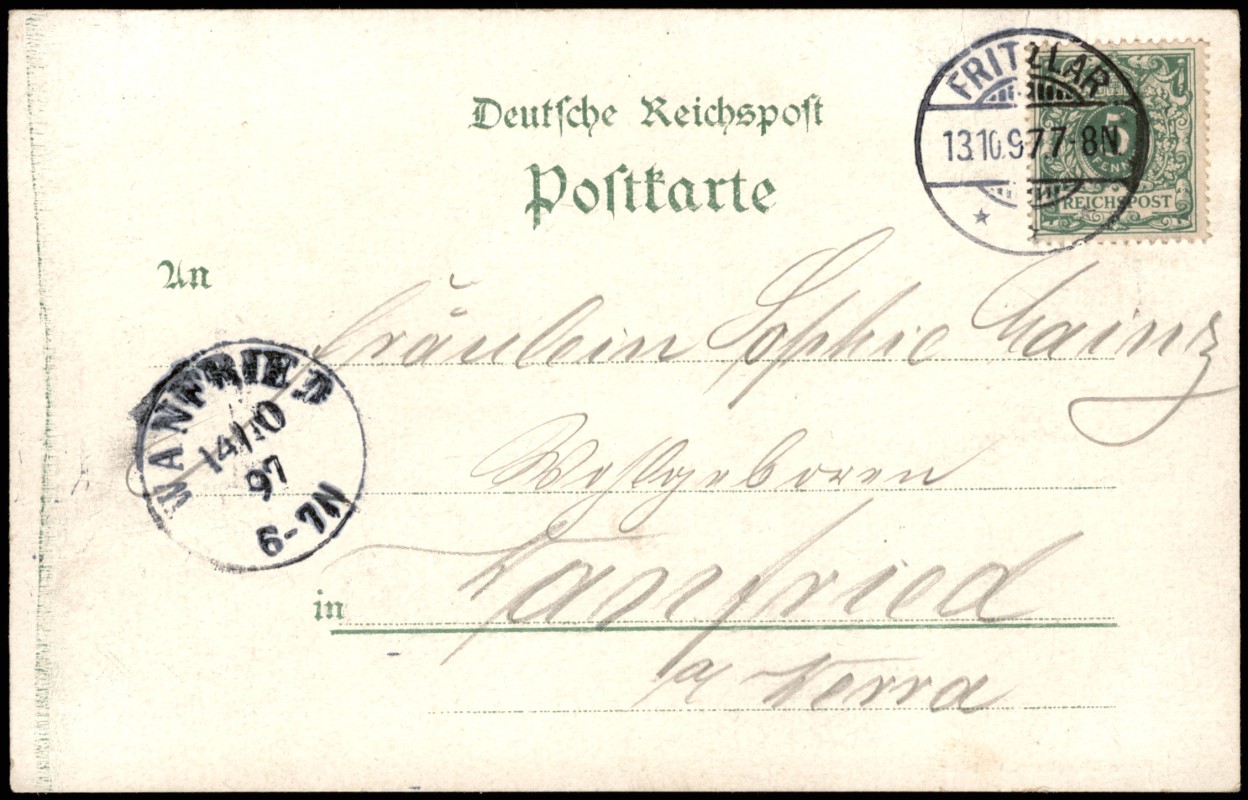 Deutsche Reichspost
Postkarte
FRITZLAR
13.10.97 7-8N
5
PFENNIG
REICHSPOST
An
Fräulein Sophie Mainz
WANFRIED
14/10
97
6-7N
Wohlgeboren
in Wanfried
a/ Werra